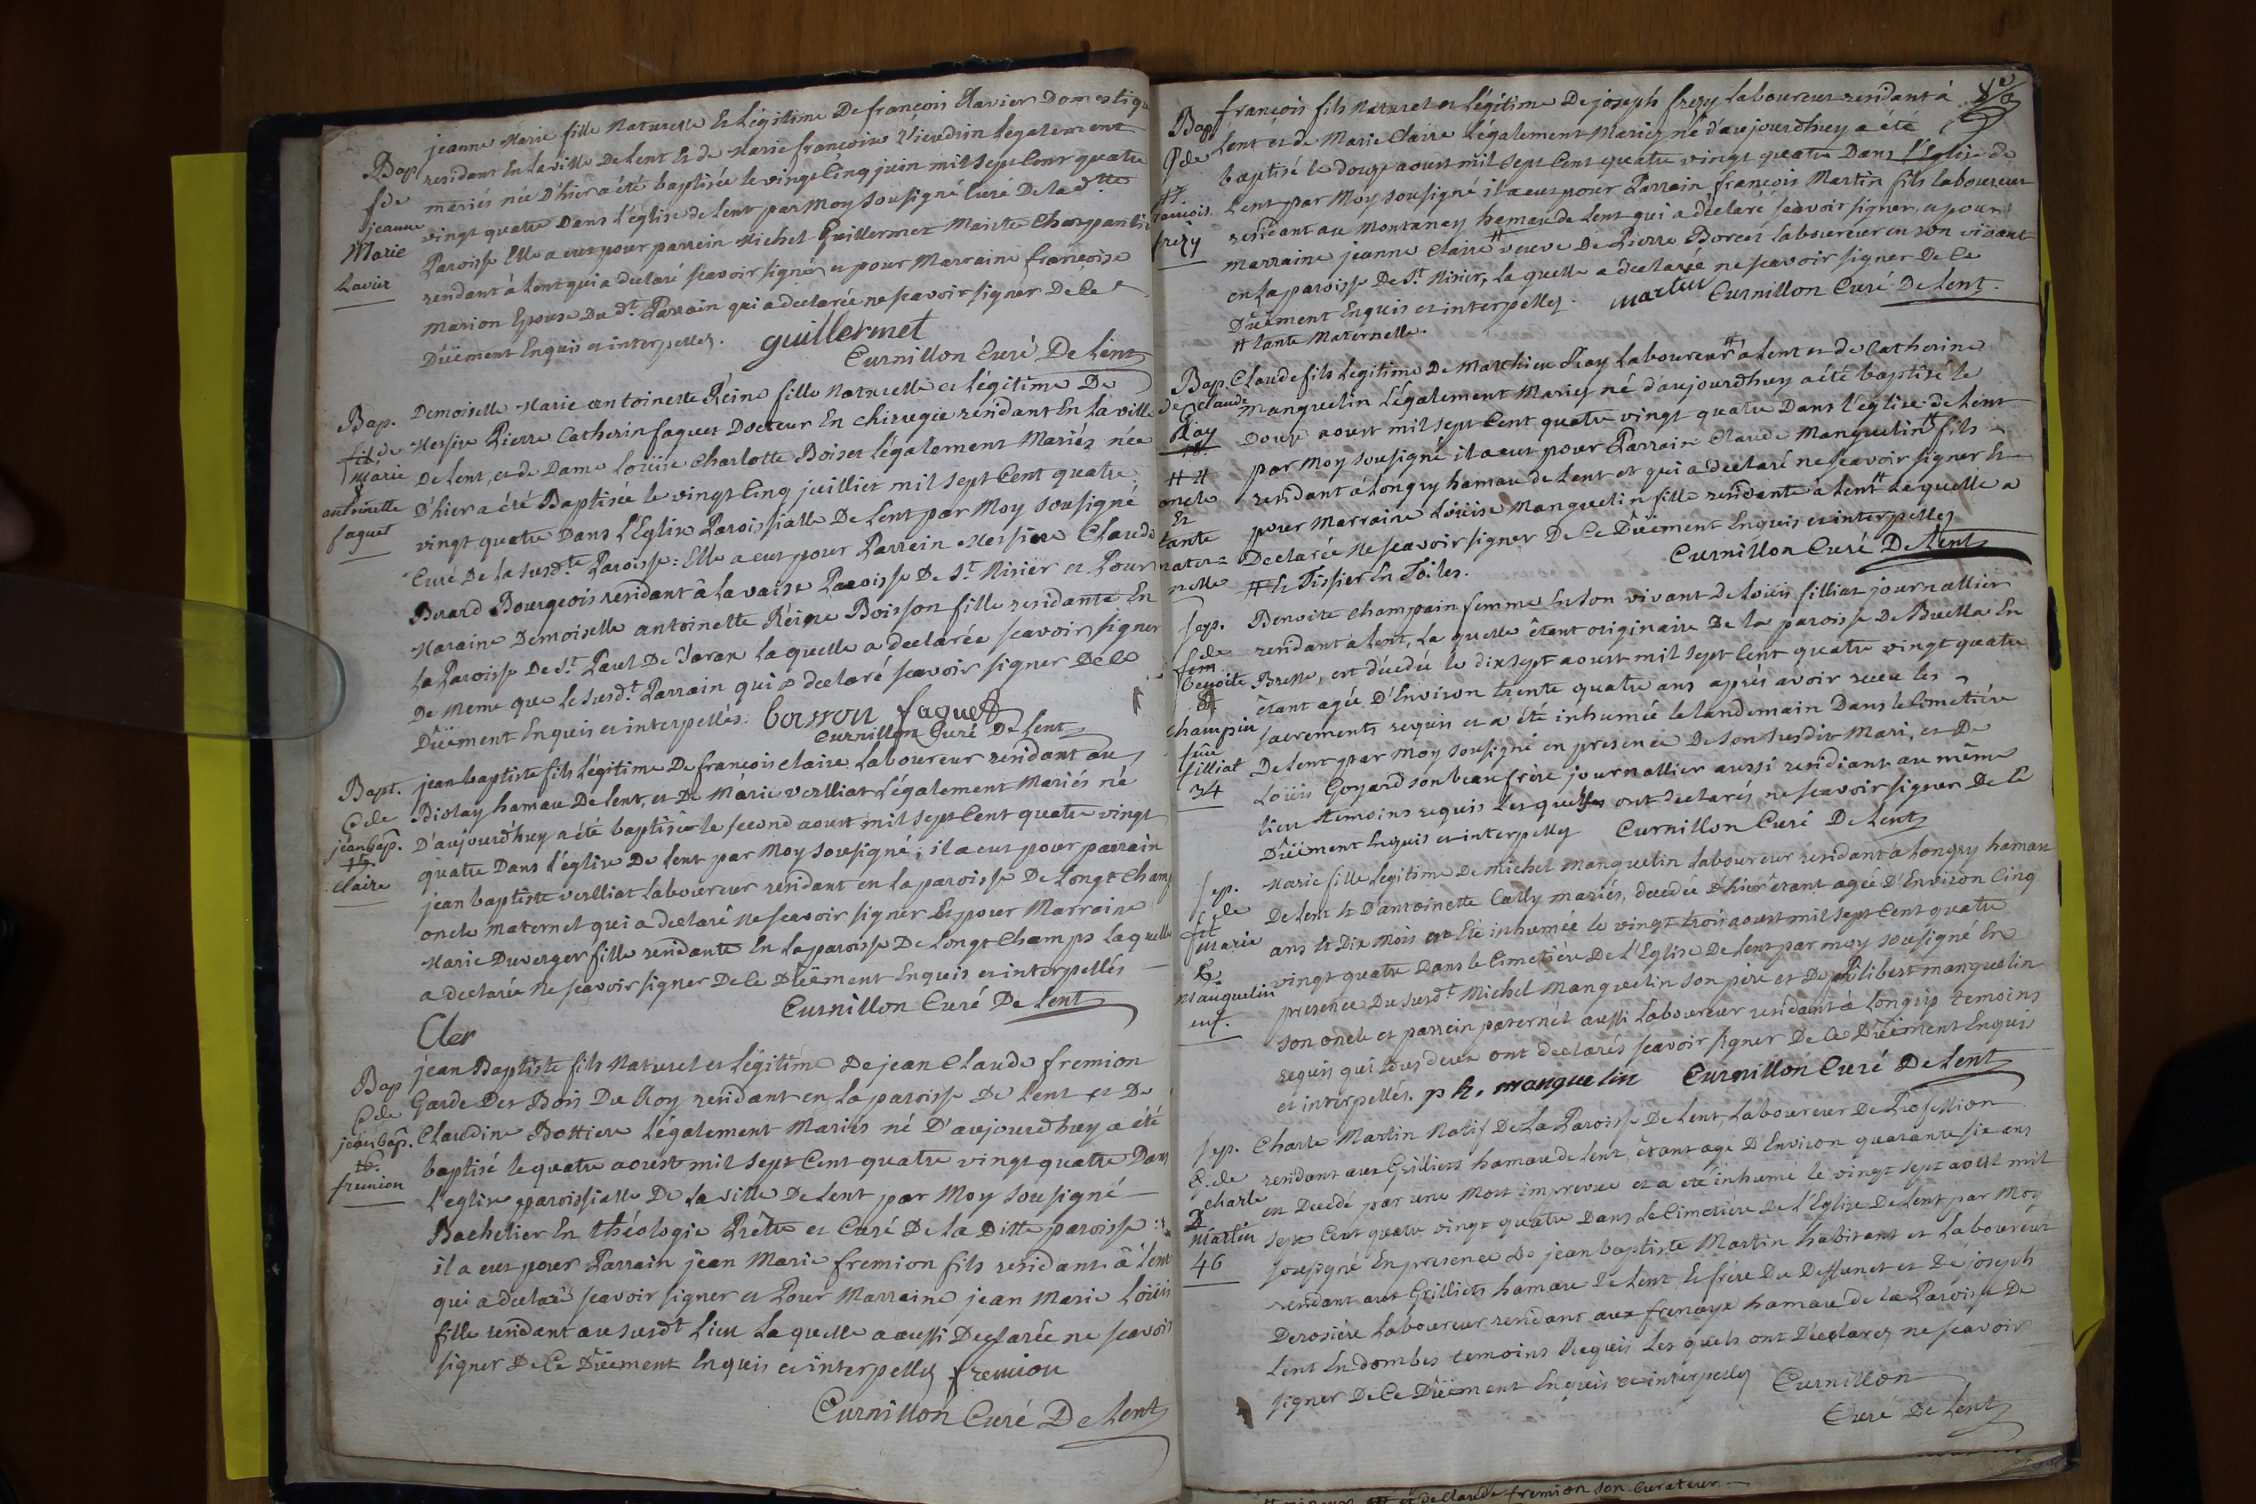 jeanne Marie fille Naturelle Et Légitime De françois Lavier Domestique
Bap. résidant En la ville De Lent Et de Marie françoise légalement
fde mariés née D'hier a été baptisée le vingt Cinq juin mil sept Cent quatre
jeanne vingt quatre Dans l'église de Lent par Moy sousigné Curé De la d.tte
Marie Paroisse Elle a eut pour parrein Michel Guillermet Maistre Charpantier
Lavier residant à Lent qui a declaré scavoir signer et pour Marraine françoise
Marion Epouse Du d.t Parrain qui a declarée ne scavoir signer De Ce
Düement Enquis et interpellés. guillermet
Curnillon Curé De Lent
Bap. Demoiselle Marie antoinette Reine fille Naturelle et légitime De
de Messire Pierre Catherin faguet Docteur En chirugie residant En la ville
Marie De Lent, et de Dame Loüise Charlotte Boiset légalement Mariés née
antoinette D'hier a été Baptisée le vingt Cinq juillet mil sept Cent quatre
faguet vingt quatre Dans l'Eglise Paroissialle De Lent par Moy sousigné
Curé De la susd.te Paroisse: Elle a eut pour Parrein Messire Claude
Buard Bourgeois residant à la vaise Paroisse De S.t Nisier et Pour
Maraine Demoiselle antoinette Reine Boisson fille residante En
la Paroisse De S.t Paul De Varax laquelle a declarée scavoir signer
De Meme que le susd.t Parrain qui a declaré scavoir signer De Ce
Düement Enquis et interpellés. boisson faguet
Curnillon Curé De Lent
Bapt. jean baptiste fils légitime De françois claire Laboureur residant au
de Biolay hamau De Lent, et De Marie verlliat Légalement Mariés né
jean bap. D'aujourd'huy a été baptisé le second aoust mil sept Cent quatre vingt
claire quatre Dans l'église De Lent par Moy sousigné; il a eut pour parrain
jean baptiste verlliat Laboureur residant en la paroisse De Longt Champ
oncle maternel qui a declaré ne scavoir signer Et pour Marraine
Marie Duverger fille residante En la paroisse De Longt Champs laquelle
a declarée ne scavoir signer De Ce Düement Enquis et interpellés
Curnillon Curé De Lent
Cler
Bap jean Baptiste fils Naturel et Légitime De jean Claude fremion
de Garde Des Bois Du Roy residant en la paroisse De Lent et De
jean bap. Claudine Bottier légalement Mariés né D'aujourd'huy a été
baptisé le quatre aoust mil sept Cent quatre vingt quatre Dans
fremion l'eglise paroissialle De la ville De Lent par Moy sousigné
Bachelier En théologie Prêtre et Curé De la Ditte paroisse:
il a eut pour Parrain jean Marie fremion fils residant à Lent
qui a declaré scavoir signer et Pour Marraine jean Marie Loüis
fille residant au susd.t Lieu laquelle a aussi Declarée ne scavoir
signer De Ce Düement Enquis et interpelléz fremion
Curnillon Curé De Lent
françois fils Naturel et légitime De joseph frezy laboureur residant à
Bap Lent et de Marie Claire légalement Mariez né d'aujourdhuy a été
de baptisé le douze aoust mil sept Cent quatre vingt quatre Dans l'Eglise de
françois Lent par Moy sousigné il a eut pour Parrain françois Martin fils laboureur
frezy residant au Montaney hamau de Lent qui a declaré scavoir signer, a pour
marraine jeanne Claire # veuve De Pierre Borcet laboureur en son vivant
en la paroisse De S.t Nisier, laquelle a declarée ne scavoir signer De Ce
Düement Enquis et interpellez. martin Curnillon Curé De Lent.
# tante Maternelle.
Bap. Claude fils légitime De Mathieu Ray Laboureur # à Lent et de Catherine
de Claude manguelin légalement Mariez né d'aujourdhuy a été baptisé le
Ray Douze aoust mil sept Cent quatre vingt quatre Dans l'église de Lent
par Moy sousigné il a eut pour Parrain Claude Manguelin # fils
oncle residant à Longry hamau de Lent et qui a declaré ne scavoir signer Et
Et pour Marraine Loüise Manguelin fille residante à Lent # laquelle a
tante Declarée Ne scavoir signer De Ce Düement Enquis et interpellez
mater= Curnillon Curé De Lent
nelle # Et Tissier En Toiles.
sep. Benoite champain femme En son vivant de Loüis filliat journallier
de residant a Lent, laquelle étant originaire De la paroisse De Buella En
fem Bresse, est décedée le dix sept aoust mil sept Cent quatre vingt quatre
benoite etant agée D'Environ trente quatre ans après avoir receu les
champin sacrements requis et a été inhumée le landemain Dans le Cimetiére
filliat De Lent par Moy sousigné en presence De son susdit Mari, et De
34 Loüis Goyard son beau frère journallier aussi residiant au même
lieu temoins requis Les quelles ont declarés ne scavoir signer De Ce
Düement Enquis et interpellez Curnillon Curé De Lent
sep. Marie fille Légitime De Michel manguelin Laboureur residant a Longry hamau
de De Lent Et D'antoinette Cally mariés, decedée D'hier etant agée D'Environ Cinq
marie ans Et Dix Mois a Eté inhumée le vingt trois aoust mil sept Cent quatre
vingt quatre Dans le Cimetiére De l'Eglise De Lent par moy sousigné En
manguelin presence Du susd.t Michel Manguelin son pere et De philibert manguelin
enf. son oncle et parrein paternel aussi Laboureur residant à Longry temoins
requis qui tous deux ont declarés scavoir signer De Ce Düement Enquis
et interpellés. ph. manguelin Curnillon Curé De Lent
sep. Charle Martin Natif De La Paroisse De Lent, Laboureur De Profession
de residant aux Grilliets hamau de Lent, étant agé D'Environ quarante six ans
charle est Decedé par une Mort imprevue et a été inhumé le vingt sept aoust mil
Martin sept Cent quatre vingt quatre Dans le Cimetiére De l'Eglise De Lent par Moy
46 sousigné En presence De jean baptiste Martin habitant et Laboureur
residant aux Grilliets hamau De Lent Et frére Du Deffunct et De joseph
Derosiére Laboureur residant aux frenaye hamau de la Paroisse De
Lent En dombes temoins Requis Les quels ont Declarez ne scavoir
signer De Ce Düement Enquis et interpellez Curnillon
Curé De Lent
et de Claude fremion son Curateur